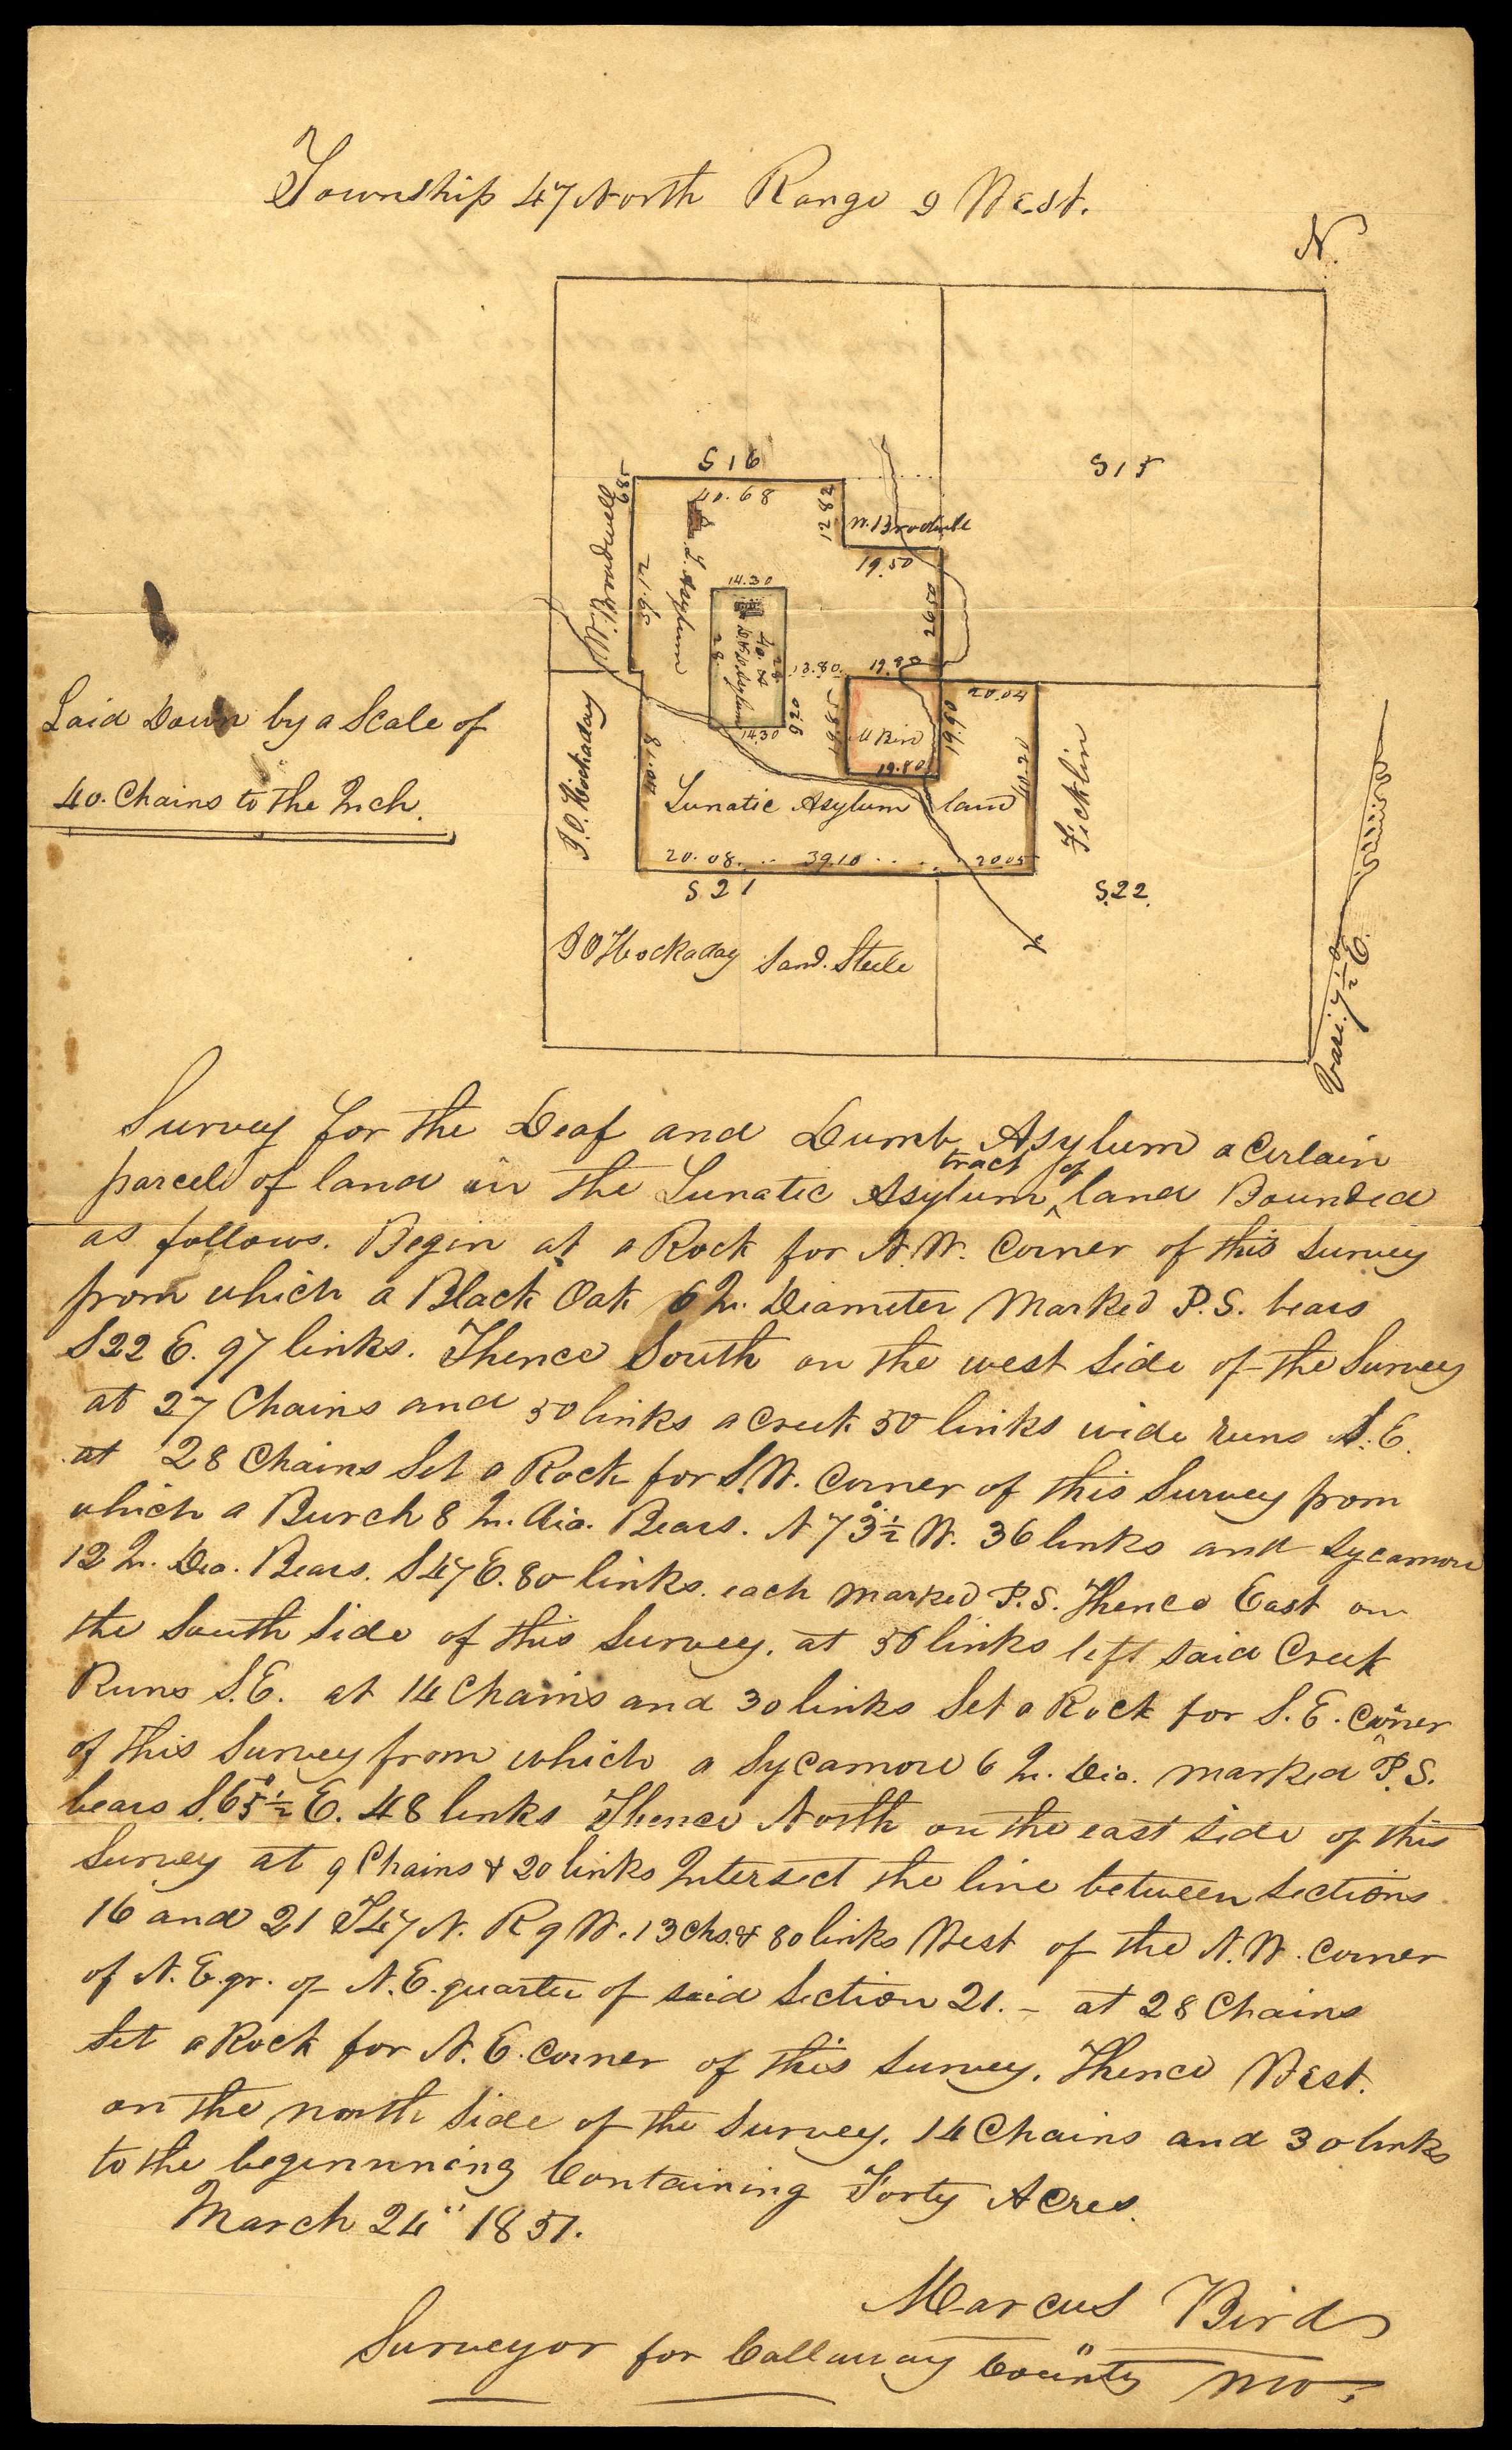 Township 47 North Range 9 West.
N.
S 16
S 15
40.68
6.85
12 82
W. Broadwell
W. Brodwell
19.50
21.65
L. Asylum
14.30
40. A
D & D Asylum
28
28
26.50
13.80
19.80
20.04
9.20
14.30
19.85
M Bird
19.60
19.80
Laid Down by a Scale of
40. Chains to the Inch.
J. O. Hockaday
Lunatic Asylum land
40.20
Ficklin
20.08
39.10
20.05
S 21
S.22.
J O Hockaday
Sand. Steele
Vari. 7½° E.
Survey for the Deaf and Dumb Asylum a Certain
parcel of land in the Lunatic Asylum tract of land Bounded
as follows. Begin at a Rock for N.W. Corner of this Survey
from which a Black Oak 6 In. Diameter Marked P.S. bears
S 22 E. 97 links. Thence South on the west Side of the Survey
at 27 Chains and 50 links a Creek 50 links wide runs S.E.
at 28 Chains Set a Rock for S.W. Corner of this Survey from
which a Burch 8 In. dia. Bears. N 73½ W. 36 links and Sycamore
12 In. Dia. Bears. S 47 E. 80 links. each Marked P.S. Thence East on
the South Side of this Survey. at 50 links left said Creek
Runs S.E. at 14 Chains and 30 links Set a Rock for S. E. Corner
of this Survey from which a Sycamore 6 In. Dia. marked P.S.
bears S. 65½° E. 48 links Thence North on the east side of this
Survey at 9 Chains & 20 links Intersect the line between Sections
16 and 21 T47 N. R 9 W. 13 Chs. & 80 links West of the N.W. corner
of N.E. qr. of N.E. quarter of said Section 21. - at 28 Chains
Set a Rock for N. E. corner of this Survey. Thence West.
on the north Side of the Survey. 14 Chains and 30 links
to the beginnning Containing Forty Acres.
March 24" 1851.
Marcus Bird
Surveyor for Callaway County Mo.